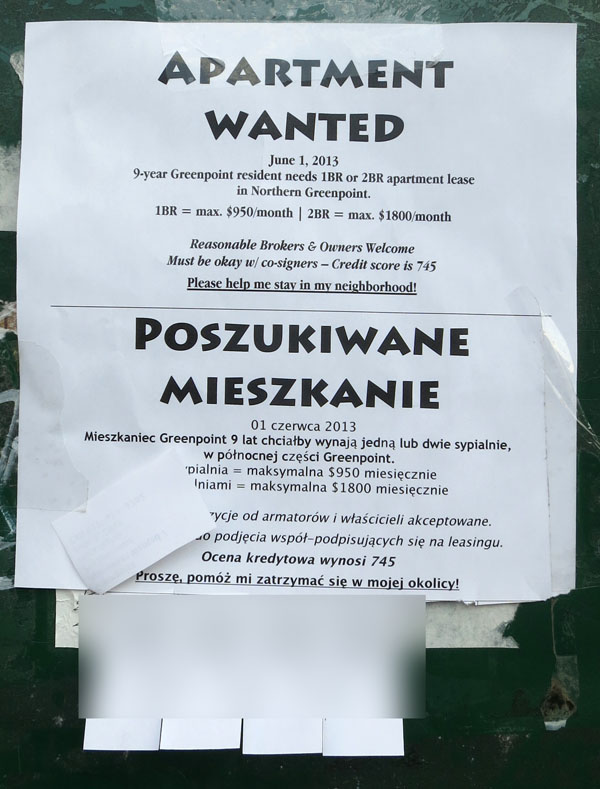 APARTMENT
WANTED
June 1, 2013
9-year Greenpoint resident needs 1BR or 2BR apartment lease
in Northern Greenpoint.
1BR = max. $950/month | 2BR = max. $1800/month
Reasonable Brokers & Owners Welcome
Must be okay w/ co-signers – Credit score is 745
Please help me stay in my neighborhood!
POSZUKIWANE
MIESZKANIE
01 czerwca 2013
Mieszkaniec Greenpoint 9 lat chciałby wynają jedną lub dwie sypialnie,
w północnej części Greenpoint.
= maksymalna $950 miesięcznie
= maksymalna $1800 miesięcznie
od armatorów i właścicieli akceptowane.
do podjęcia współ-podpisujących się na leasingu.
Ocena kredytowa wynosi 745
Proszę, pomóż mi zatrzymać się w mojej okolicy!